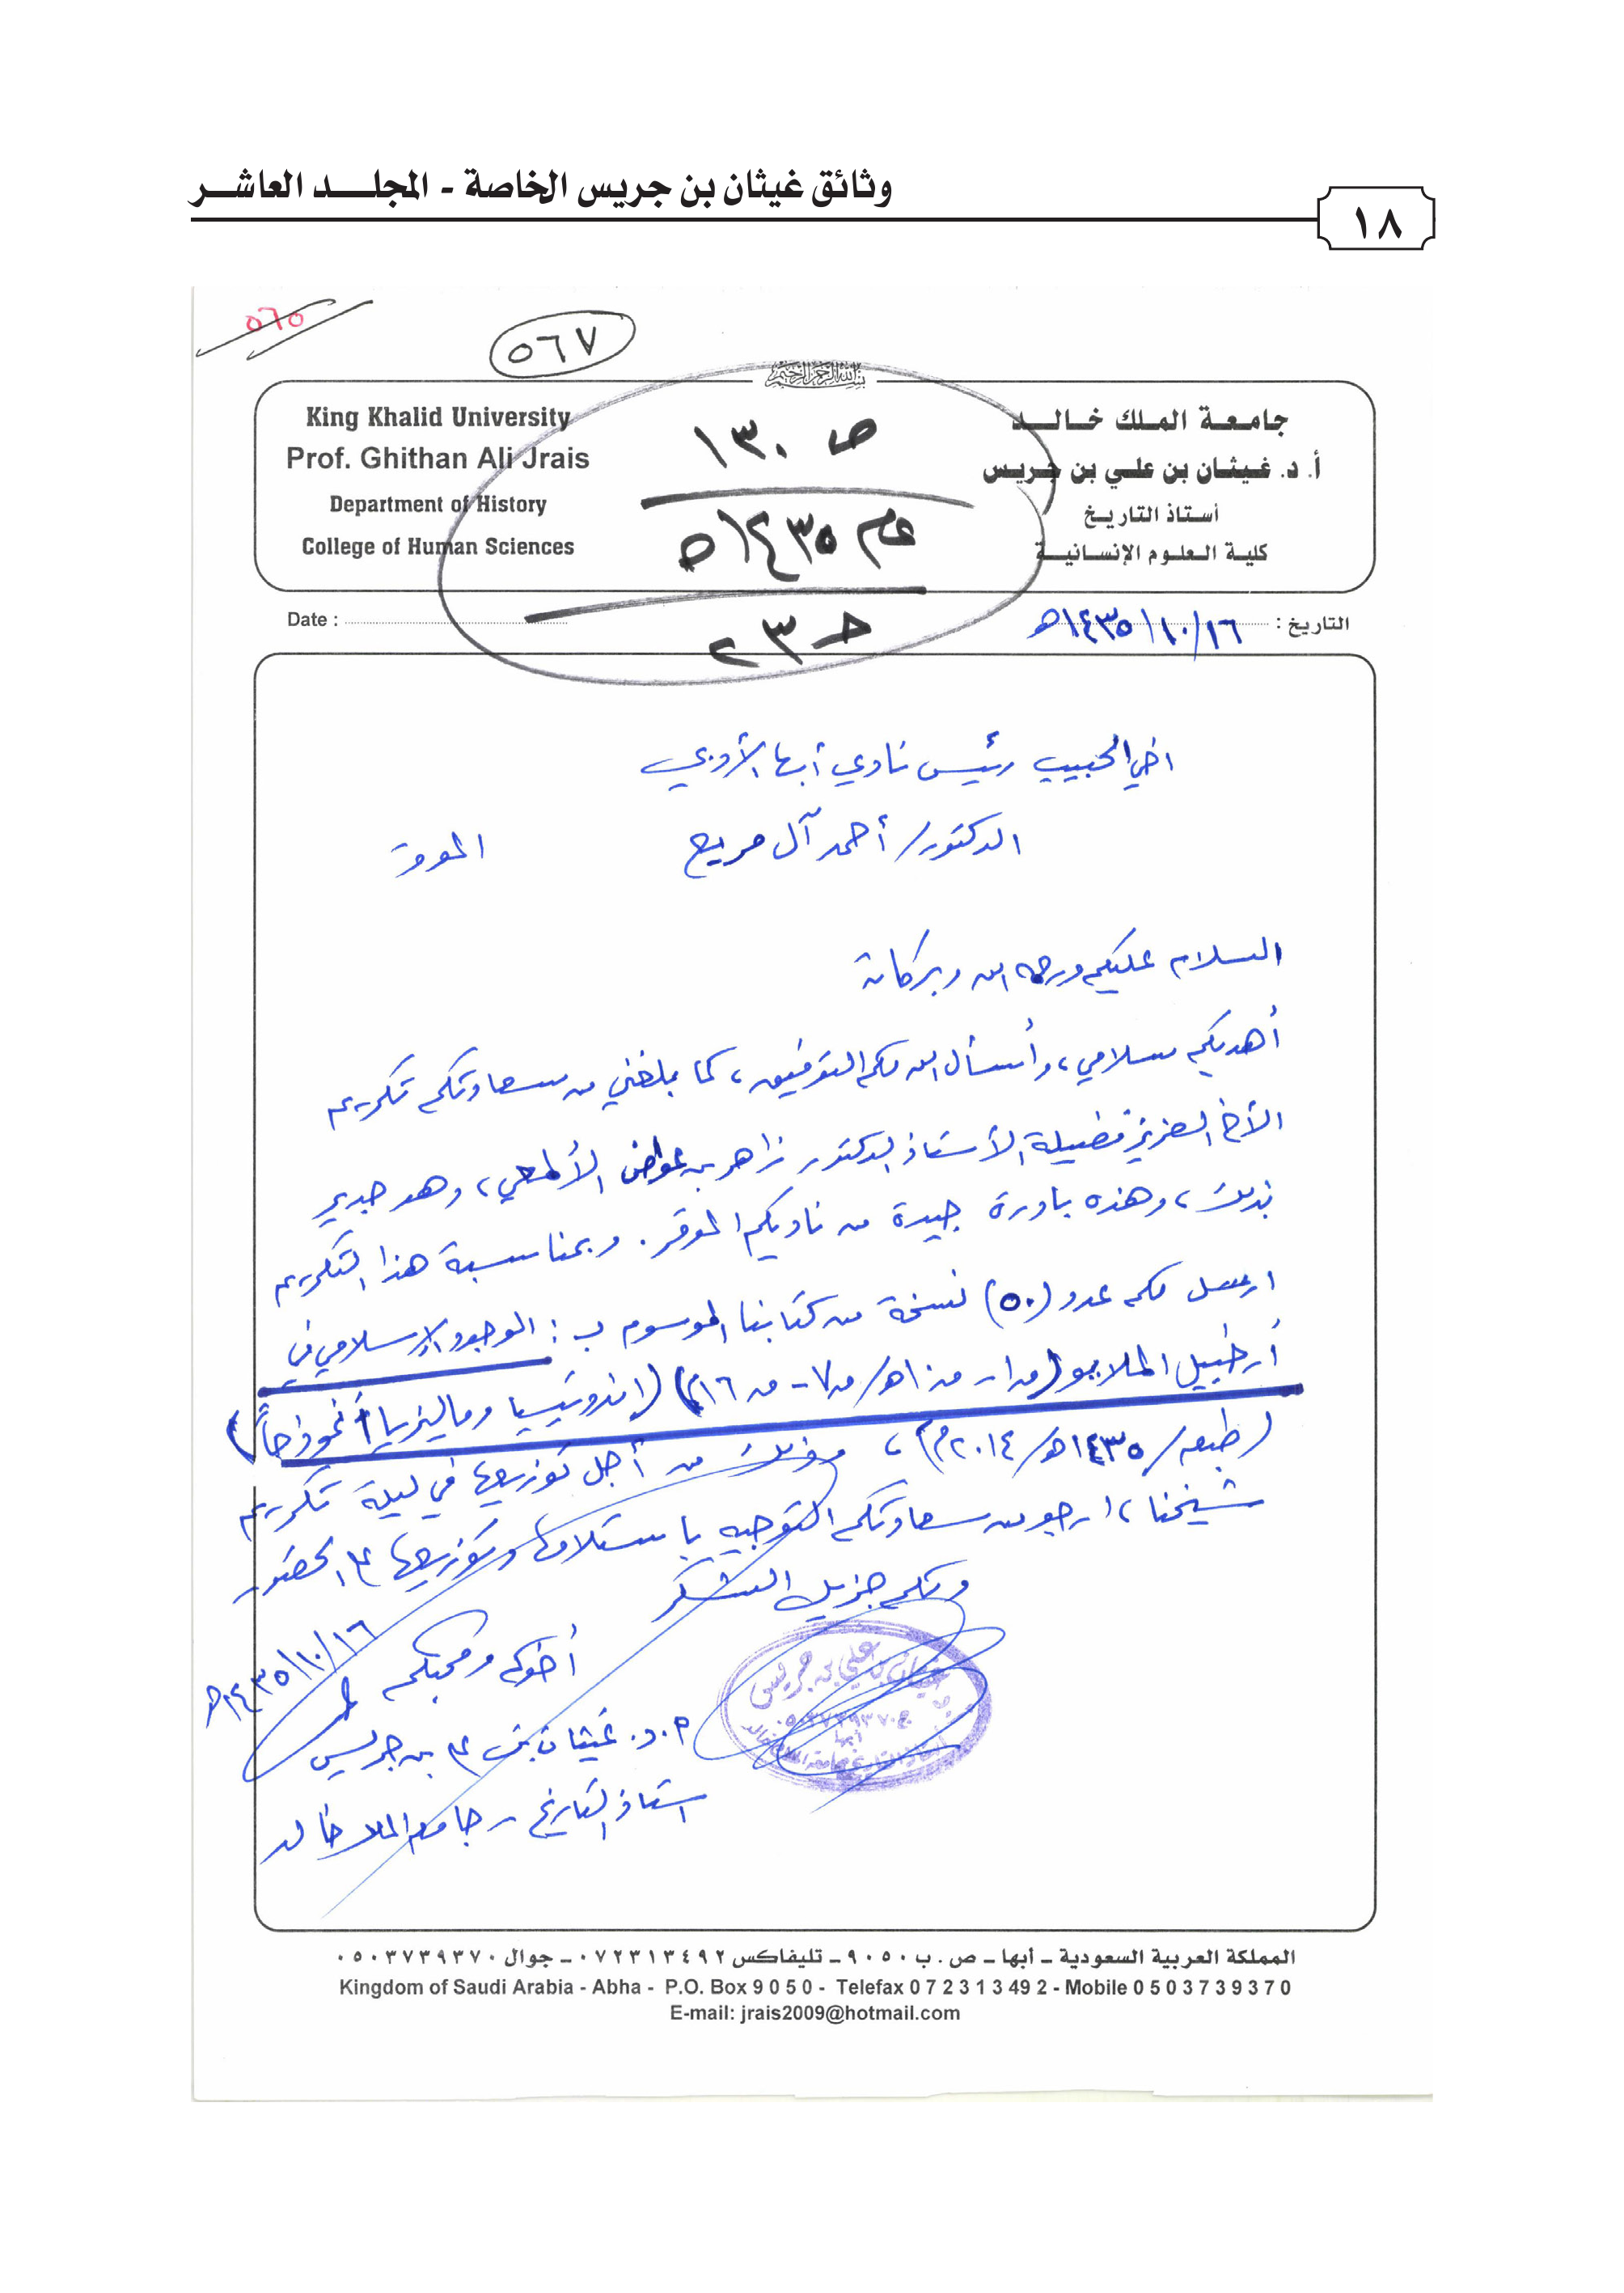 وثائق غيثان بن جريس الخاصة - المجلد العاشر
١٨
٥٦٥
٥٦٧
بسم الله الرحمن الرحيم
King Khalid University
Prof. Ghithan Ali Jrais
Department of History
College of Human Sciences
جامعة الملك خالد
أ. د. غيثان بن علي بن جريس
أستاذ التاريخ
كلية العلوم الإنسانية
ص ١٣٠
عام ١٤٣٥هـ
Date :
التاريخ : ١٦/١٠/١٤٣٥هـ
اخي الحبيب رئيس نادي أبها الأدبي
الدكتور/ أحمد آل مريع الموقر
السلام عليكم ورحمة الله وبركاته
أهديكم سلامي، وأسأل الله لكم التوفيق، كما بلغني من سعادتكم تكريم
الأخ العزيز فضيلة الأستاذ الدكتور زاهر بن عواض الألمعي، وهو جدير
بذلك، وهذه بادرة جيدة من ناديكم الموقر. وبمناسبة هذا التكريم
ارسل لكم عدد (٥٠) نسخة من كتابنا الموسوم بـ: الوجود الإسلامي في
أرخبيل الملايو (ق١ - ق١٠هـ/ ق٧ - ق١٦م) (اندونيسيا وماليزيا أنموذجاً)
(طبعة/ ١٤٣٥هـ/ ٢٠١٤م)، وذلك من أجل توزيعها في ليلة تكريم
شيخنا، ارجو من سعادتكم التوجيه باستلامها وتوزيعها على الحضور
ولكم جزيل الشكر
أخوكم ومحبكم
١٦/١٠/١٤٣٥هـ
أ.د. غيثان بن علي بن جريس
استاذ التاريخ - جامعة الملك خالد
غيثان بن علي بن جريس
ج ٠٥٠٣٧٣٩٣٧٠
أبها
أستاذ التاريخ بجامعة الملك خالد
المملكة العربية السعودية - أبها - ص . ب ٩٠٥٠ - تليفاكس ٠٧٢٣١٣٤٩٢ - جوال ٠٥٠٣٧٣٩٣٧٠
Kingdom of Saudi Arabia - Abha - P.O. Box 9 0 5 0 - Telefax 0 7 2 3 1 3 49 2 - Mobile 0 5 0 3 7 3 9 3 7 0
E-mail: jrais2009@hotmail.com